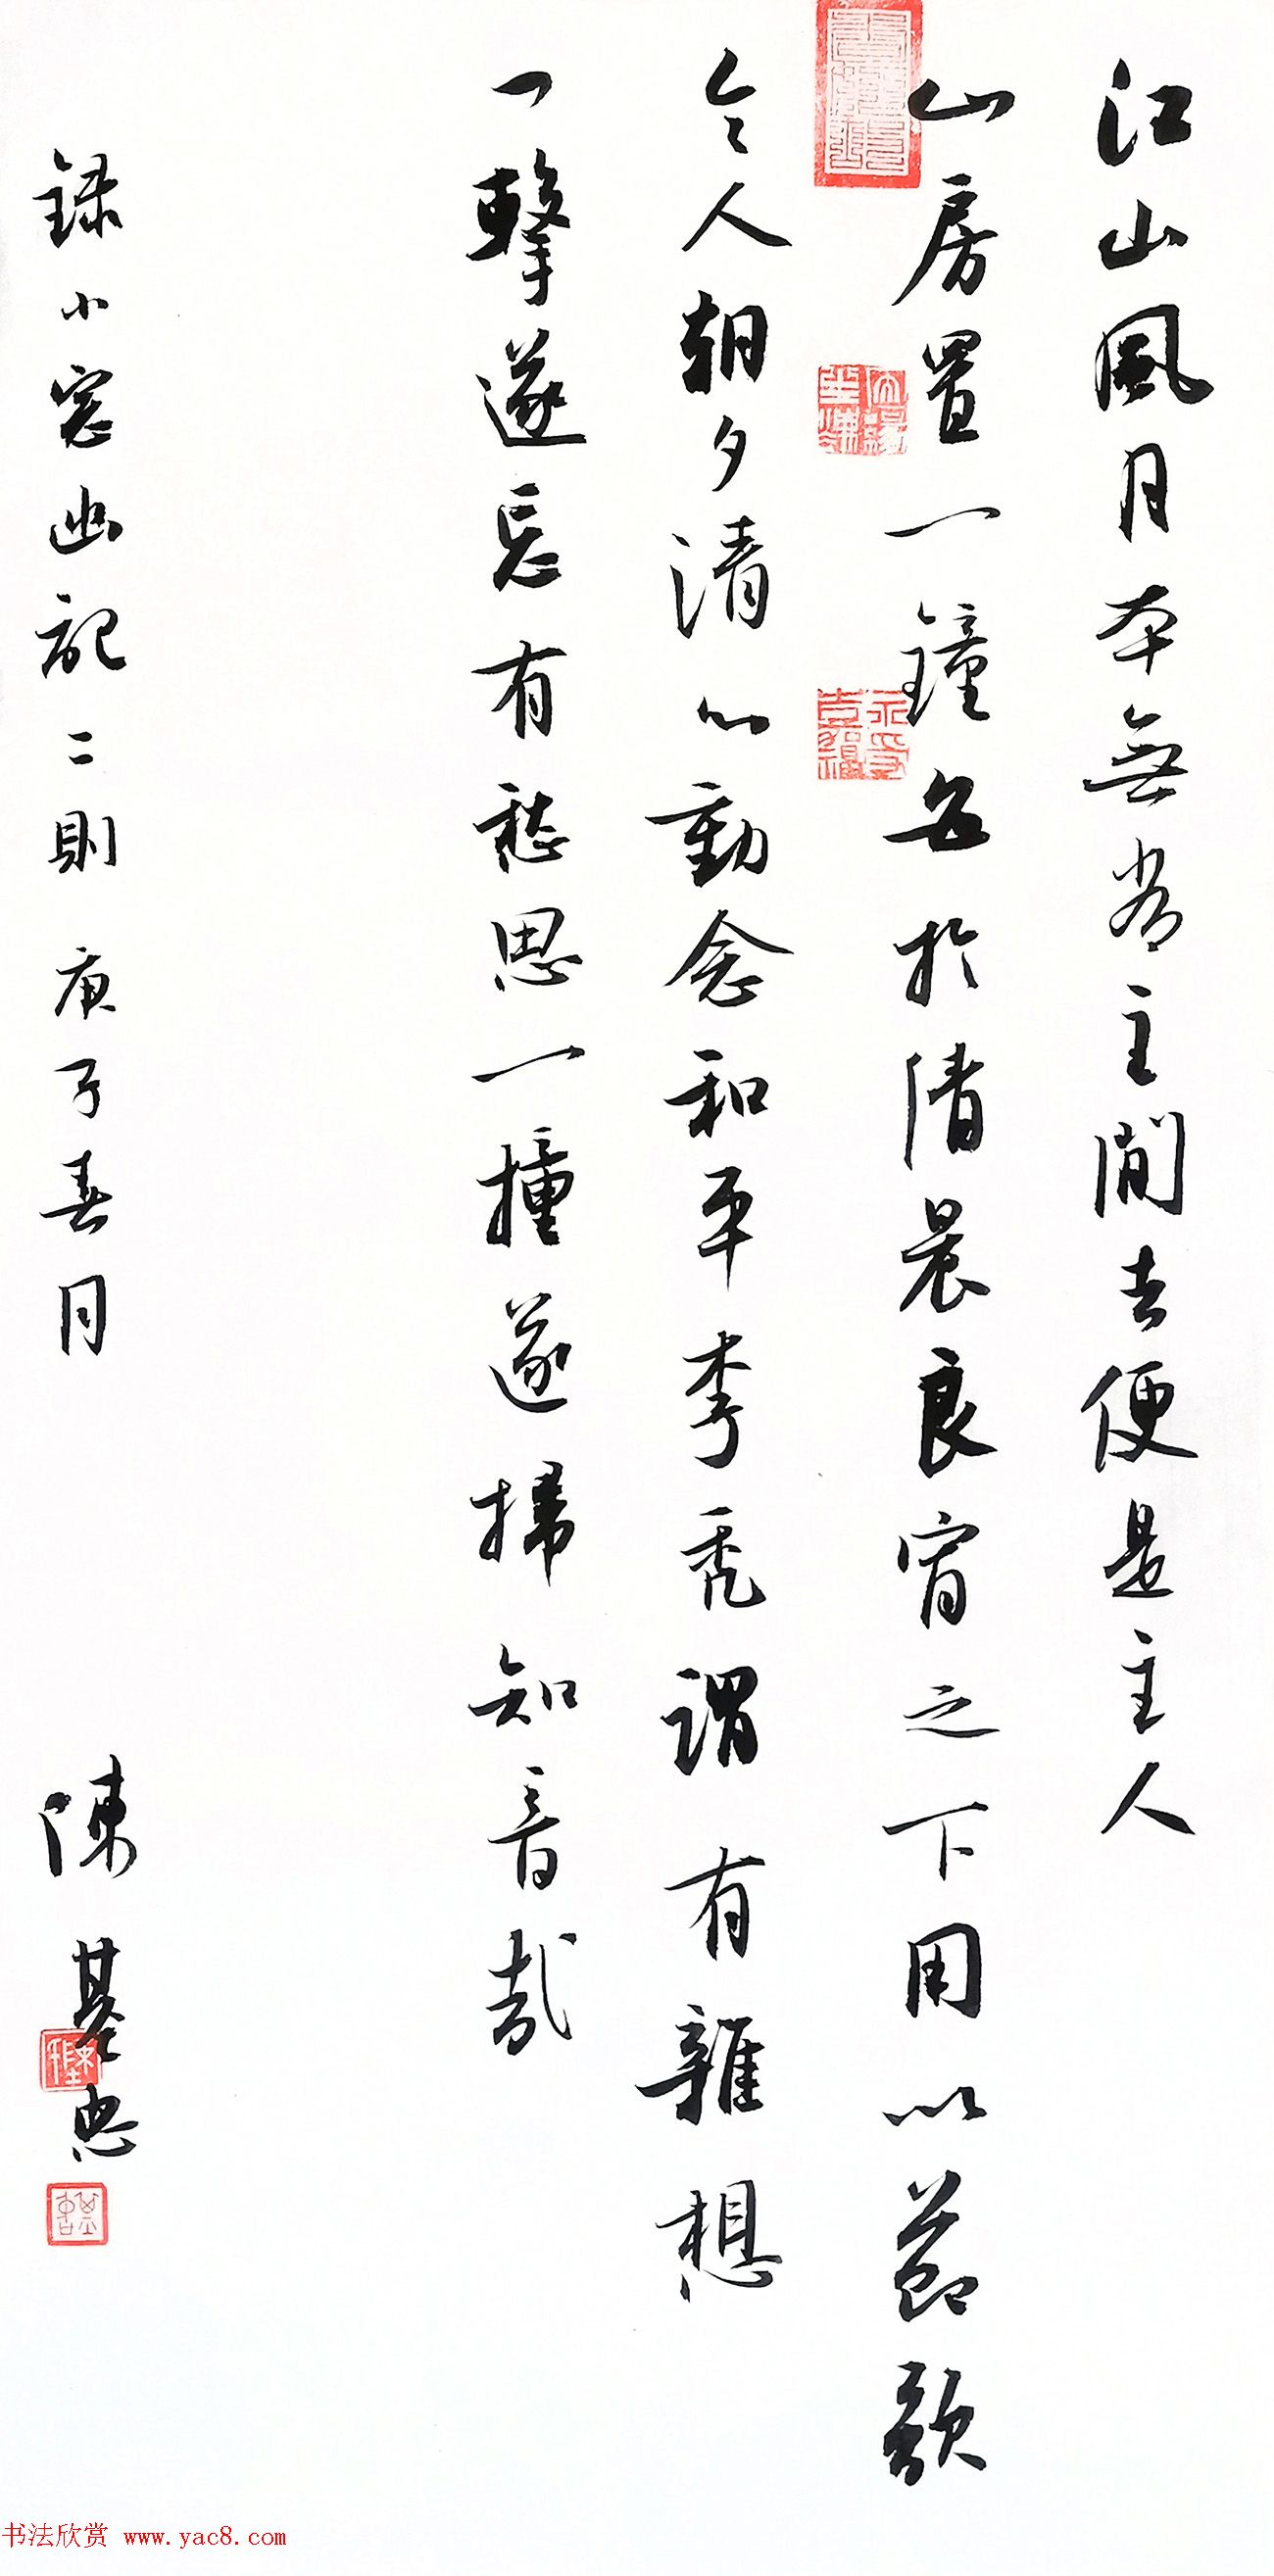 江山風月本無常主閒者便是主人
山房置一鐘每於清晨良宵之下用以節歌
令人朝夕清心動念和平李禿謂有雜想
一擊遂忘有愁思一撞遂掃知音哉
錄小窗幽記二則 庚子春月 陳基忠
永受嘉福
书法欣赏 www.yac8.com